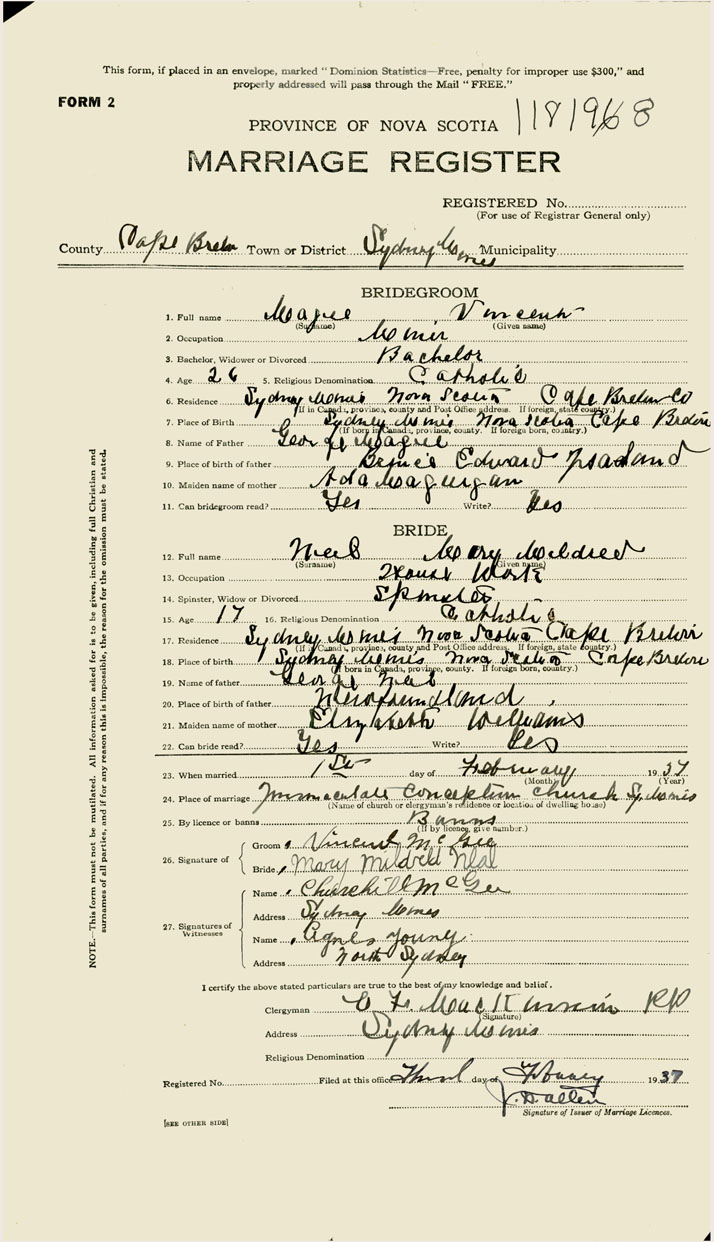 This form, if placed in an envelope, marked "Dominion Statistics—Free, penalty for improper use $300," and
properly addressed will pass through the Mail "FREE."
FORM 2
PROVINCE OF NOVA SCOTIA 1181968
MARRIAGE REGISTER
REGISTERED No.
(For use of Registrar General only)
County Cape Breton Town or District Sydney Mines Municipality
BRIDEGROOM
1. Full name Magee Vincent
(Surname) (Given name)
2. Occupation Miner
3. Bachelor, Widower or Divorced Bachelor
4. Age 26 5. Religious Denomination Catholic
6. Residence Sydney Mines Nova Scotia Cape Breton Co
(If in Canada, province, county and Post Office address. If foreign, state country.)
7. Place of Birth Sydney Mines Nova Scotia Cape Breton
(If born in Canada, province, county. If foreign born, country.)
8. Name of Father George Magee
9. Place of birth of father Prince Edward Island
10. Maiden name of mother Ada
11. Can bridegroom read? Yes Write? Yes
BRIDE
12. Full name Neil Mary Mildred
(Surname) (Given name)
13. Occupation House Work
14. Spinster, Widow or Divorced Spinster
15. Age 17 16. Religious Denomination Catholic
17. Residence Sydney Mines Nova Scotia Cape Breton
(If in Canada, province, county and Post Office address. If foreign, state country.)
18. Place of birth Sydney Mines Nova Scotia Cape Breton
(If born in Canada, province, county. If foreign born, country.)
19. Name of father George Neil
20. Place of birth of father Newfoundland
21. Maiden name of mother Elizabeth Williams
22. Can bride read? Yes Write? Yes
23. When married 1st day of February 1937
(Month) (Year)
24. Place of marriage Immaculate Conception Church Sy. Mines
(Name of church or clergyman's residence or location of dwelling house)
25. By licence or banns Banns
(If by licence, give number.)
26. Signature of
Groom Vincent McGee
Bride Mary Mildred Neal
27. Signatures of Witnesses
Name Churchill McGee
Address Sydney Mines
Name Agnes Young
Address North Sydney
I certify the above stated particulars are true to the best of my knowledge and belief.
Clergyman C. F. MacKinnon PP
(Signature)
Address Sydney Mines
Religious Denomination
Registered No. Filed at this office Third day of February 1937
J. D. Allen
Signature of Issuer of Marriage Licences.
[SEE OTHER SIDE]
NOTE.—This form must not be mutilated. All information asked for is to be given, including full Christian and
surnames of all parties, and if for any reason this is impossible, the reason for the omission must be stated.